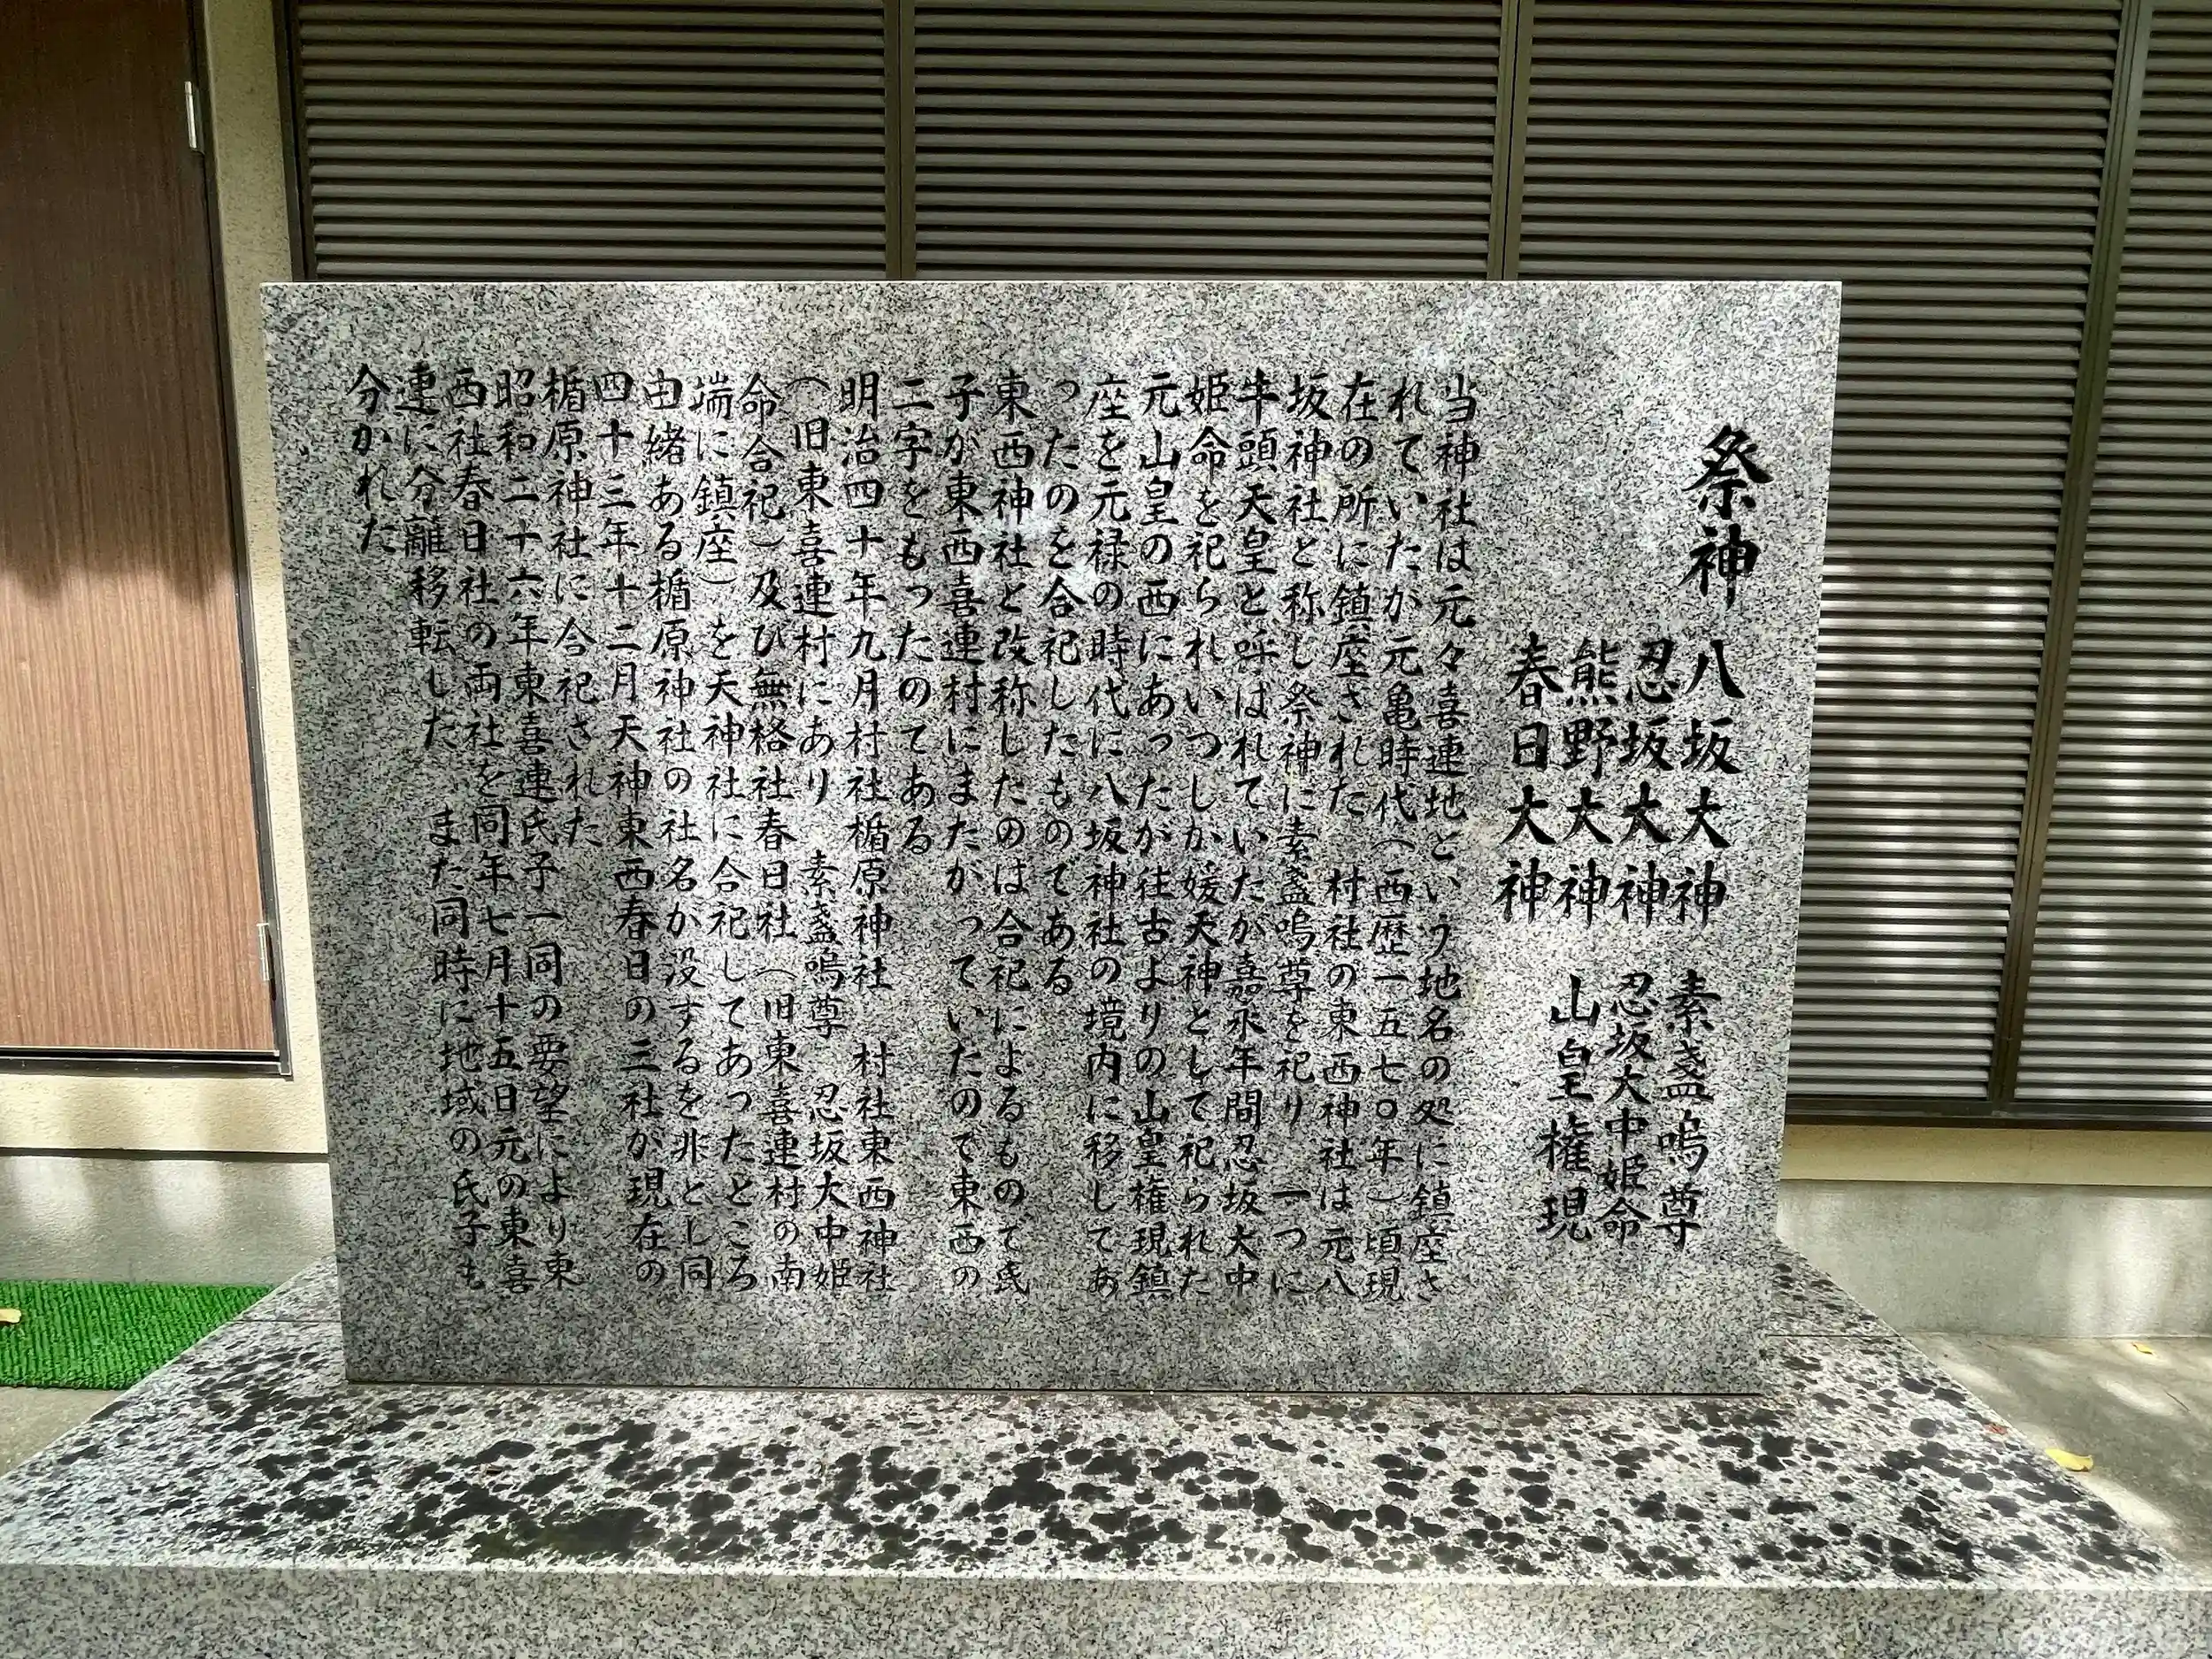 祭神
八坂大神 素盞嗚尊
忍坂大神 忍坂大中姫命
熊野大神 山皇権現
春日大神
当神社は元々喜連地という地名の処に鎮座さ
れていたが元亀時代(西歴一五七〇年)頃現
在の所に鎮座された 村社の東西神社は元八
坂神社と称し祭神に素盞嗚尊を祀り 一つに
牛頭天皇と呼はれていたが嘉永年間忍坂大中
姫命を祀られいつしか媛天神として祀られた
元山皇の西にあったが往古よりの山皇権現鎮
座を元禄の時代に八坂神社の境内に移してあ
ったのを合祀したものである
東西神社と改称したのは合祀によるもので氏
子が東西喜連村にまたがっていたので東西の
二字をもったのてある
明治四十年九月村社楯原神社 村社東西神社
(旧東喜連村にあり 素盞嗚尊 忍坂大中姫
命合祀)及び無格社春日社(旧東喜連村の南
端に鎮座)を天神社に合祀してあったところ
由緒ある楯原神社の社名か没するを非とし同
四十三年十二月天神東西春日の三社か現在の
楯原神社に合祀された
昭和二十六年東喜連氏子一同の要望により東
西社春日社の両社を同年七月十五日元の東喜
連に分離移転した また同時に地域の氏子も
分かれた